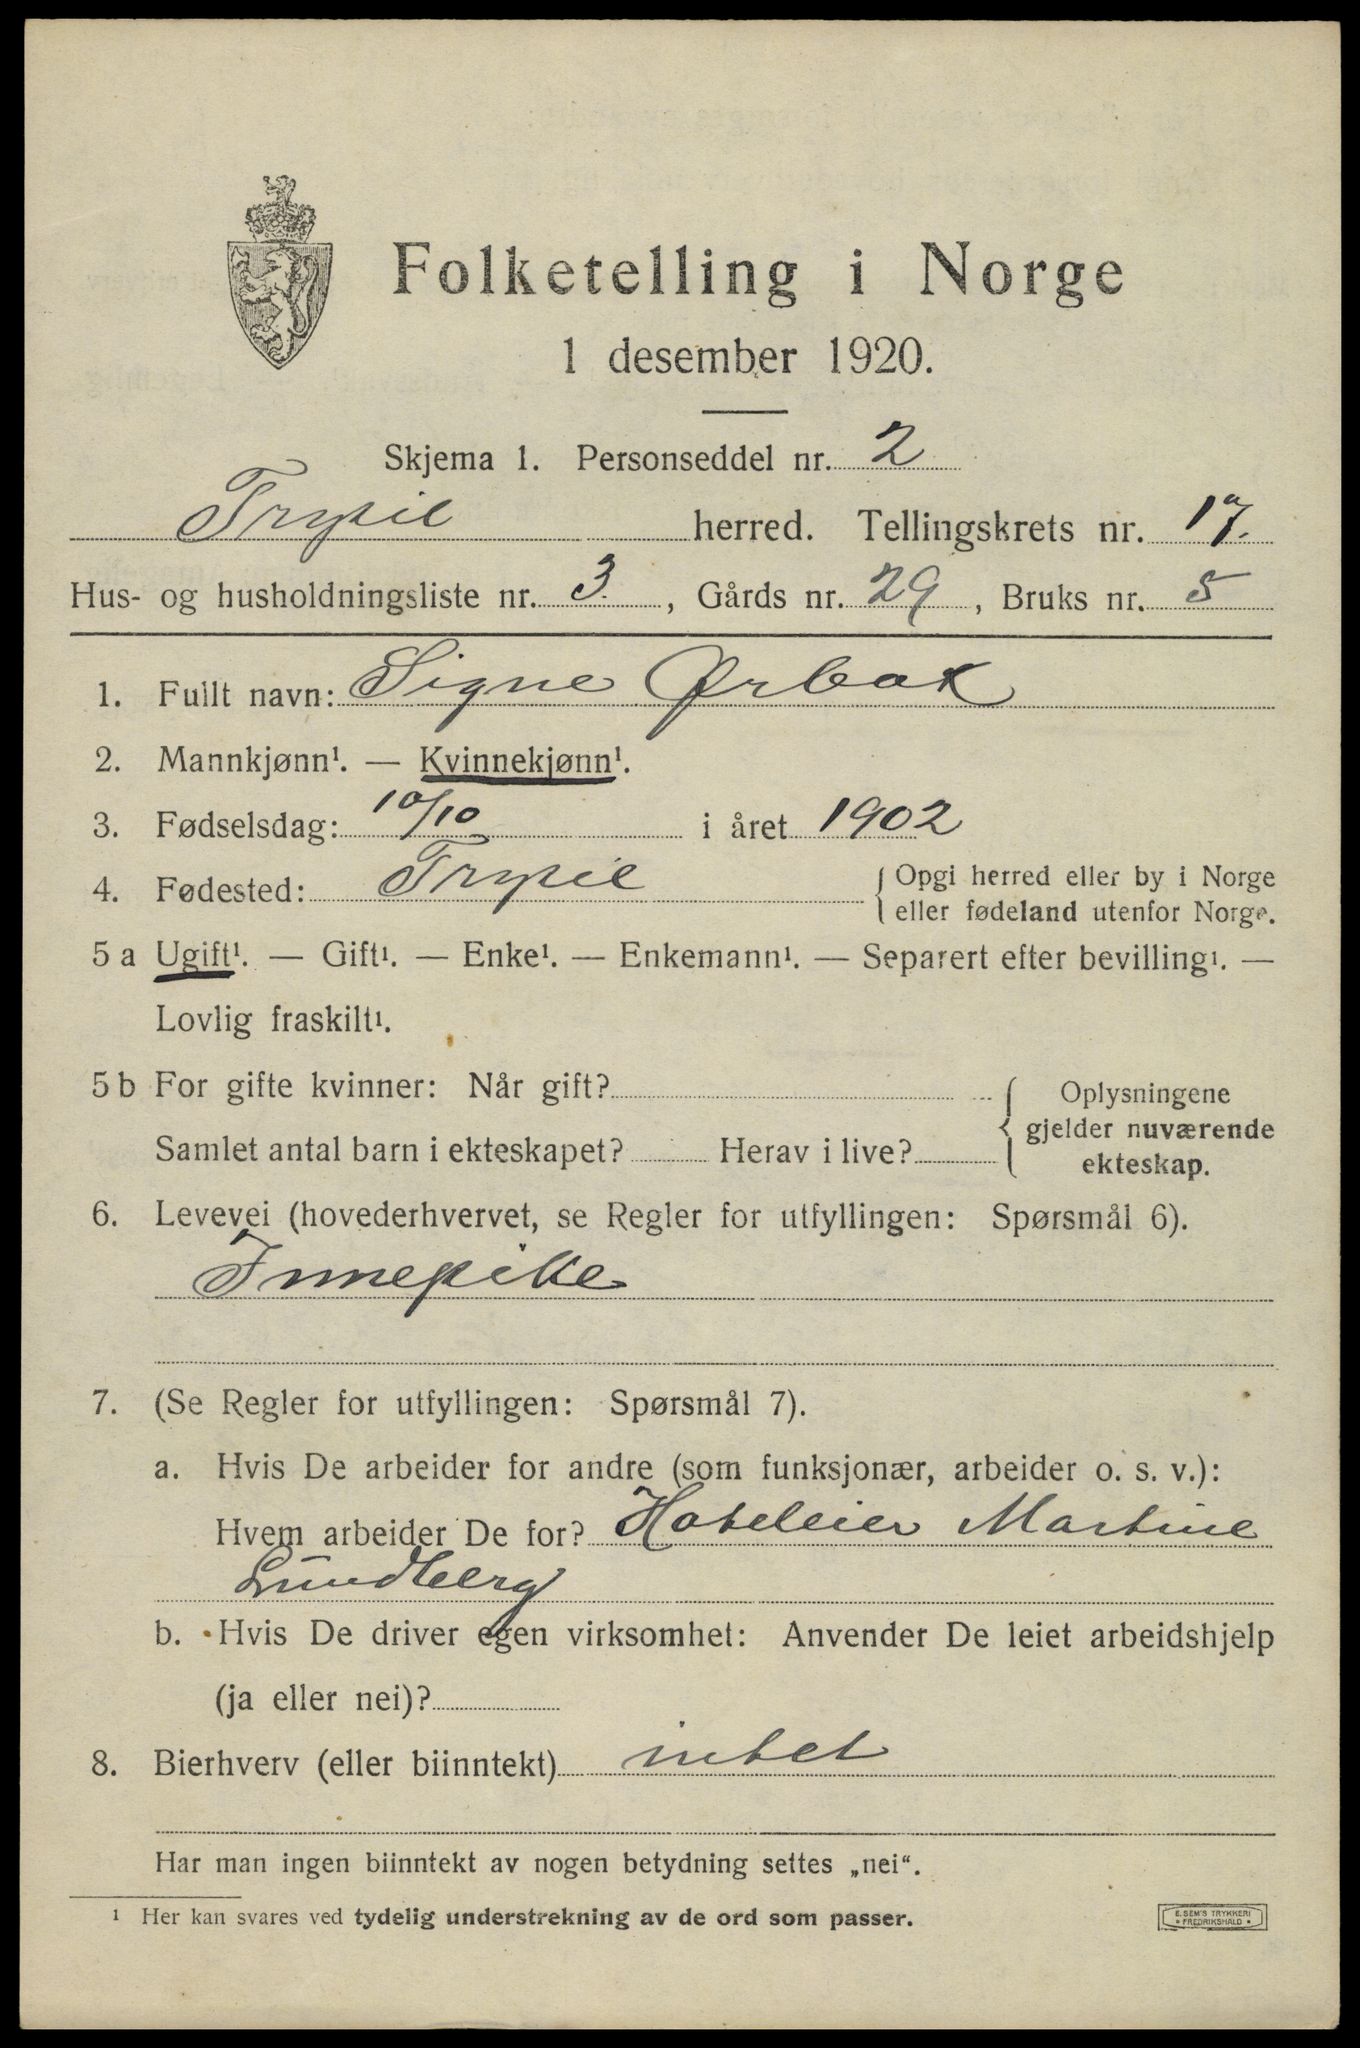 Folketelling i Norge
1 desember 1920.
Skjema 1. Personseddel nr. 2
Trysil herred. Tellingskrets nr. 17.
Hus- og husholdningsliste nr. 3. , Gårds nr. 29 , Bruks nr. 5
1. Fullt navn: Signe Ørbak
2. Mannkjønn¹. — Kvinnekjønn¹.
3. Fødselsdag: 10/10 i året 1902
4. Fødested: Trysil { Opgi herred eller by i Norge
eller fødeland utenfor Norge.
5 a Ugift¹. — Gift¹. — Enke¹. — Enkemann¹. — Separert efter bevilling¹. —
Lovlig fraskilt¹.
5 b For gifte kvinner: Når gift? { Oplysningene
gjelder nuværende
Samlet antal barn i ekteskapet? Herav i live? ekteskap.
6. Levevei (hovederhvervet, se Regler for utfyllingen: Spørsmål 6).
Innepike
7. (Se Regler for utfyllingen: Spørsmål 7).
a. Hvis De arbeider for andre (som funksjonær, arbeider o. s. v.):
Hvem arbeider De for? Hoteleier Martine
Lundberg
b. Hvis De driver egen virksomhet: Anvender De leiet arbeidshjelp
(ja eller nei)?
8. Bierhverv (eller biinntekt) intet
Har man ingen biinntekt av nogen betydning settes „nei“.
¹ Her kan svares ved tydelig understrekning av de ord som passer.
E. SEM'S TRYKKERI
• FREDRIKSHALD •